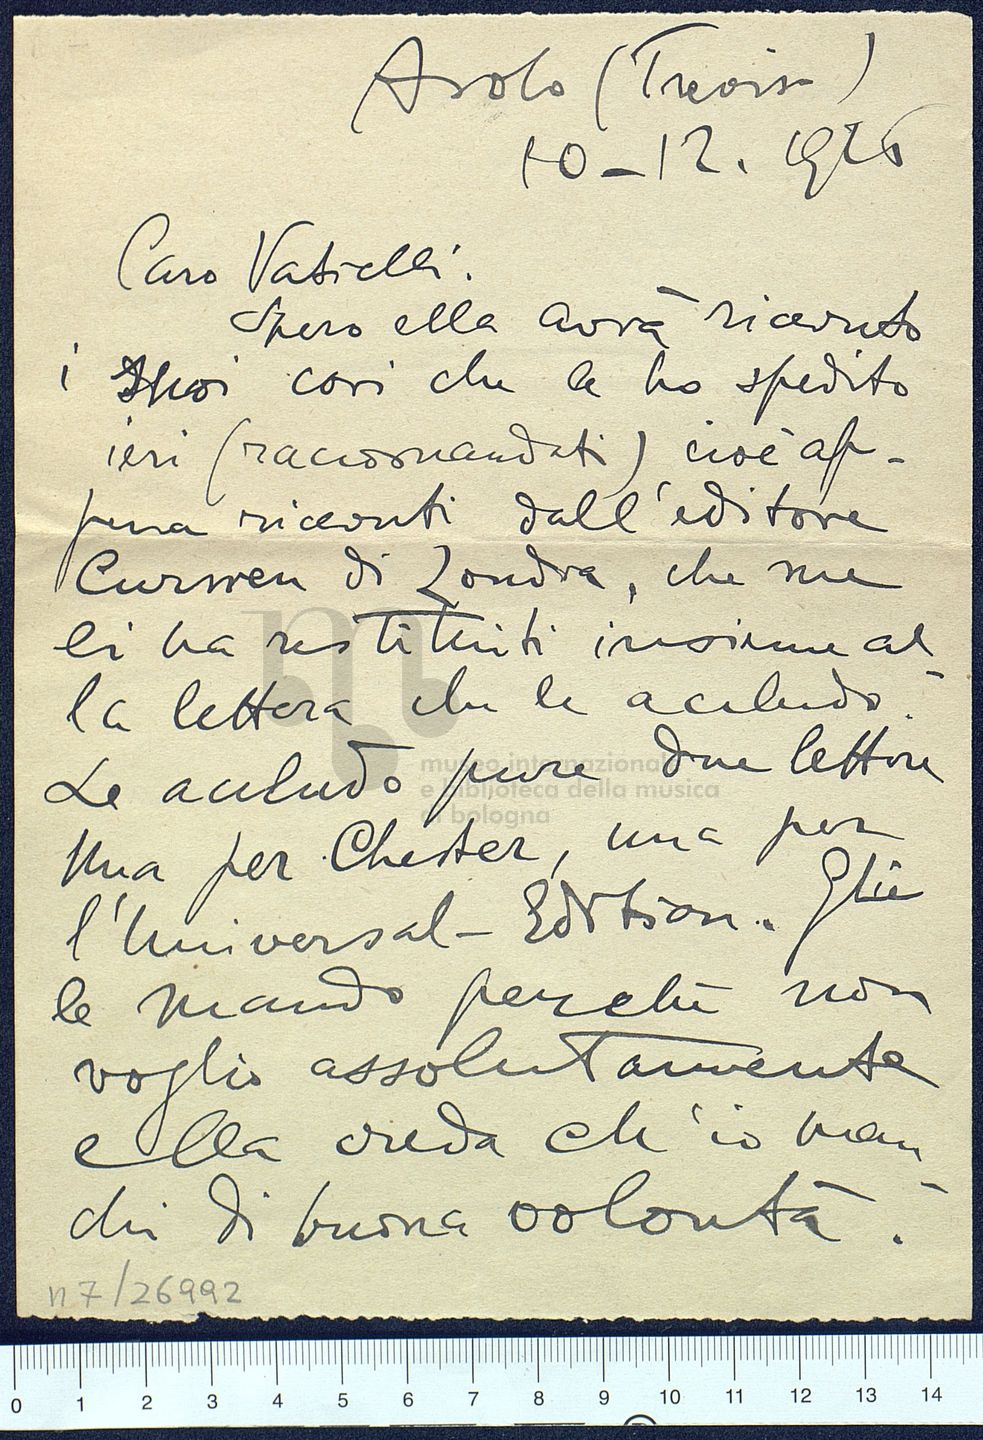 Asolo (Treviso)
10-12. 1926
Caro Vatielli.
Spero ella avrà ricevuto
i suoi cori che le ho spedito
ieri (raccomandati) cioè ap-
pena ricevuti dall'editore
Curwen di Londra, che me
li ha restituiti insieme al-
la lettera che le accludo.
Le accludo pure due lettere
una per Chester, una per
l'Universal-Edition. Glie
le mando perchè non
voglio assolutamente
ella creda ch'io man-
chi di buona volontà.
n 7/26992
museo internazionale
e biblioteca della musica
di bologna
0 1 2 3 4 5 6 7 8 9 10 11 12 13 14